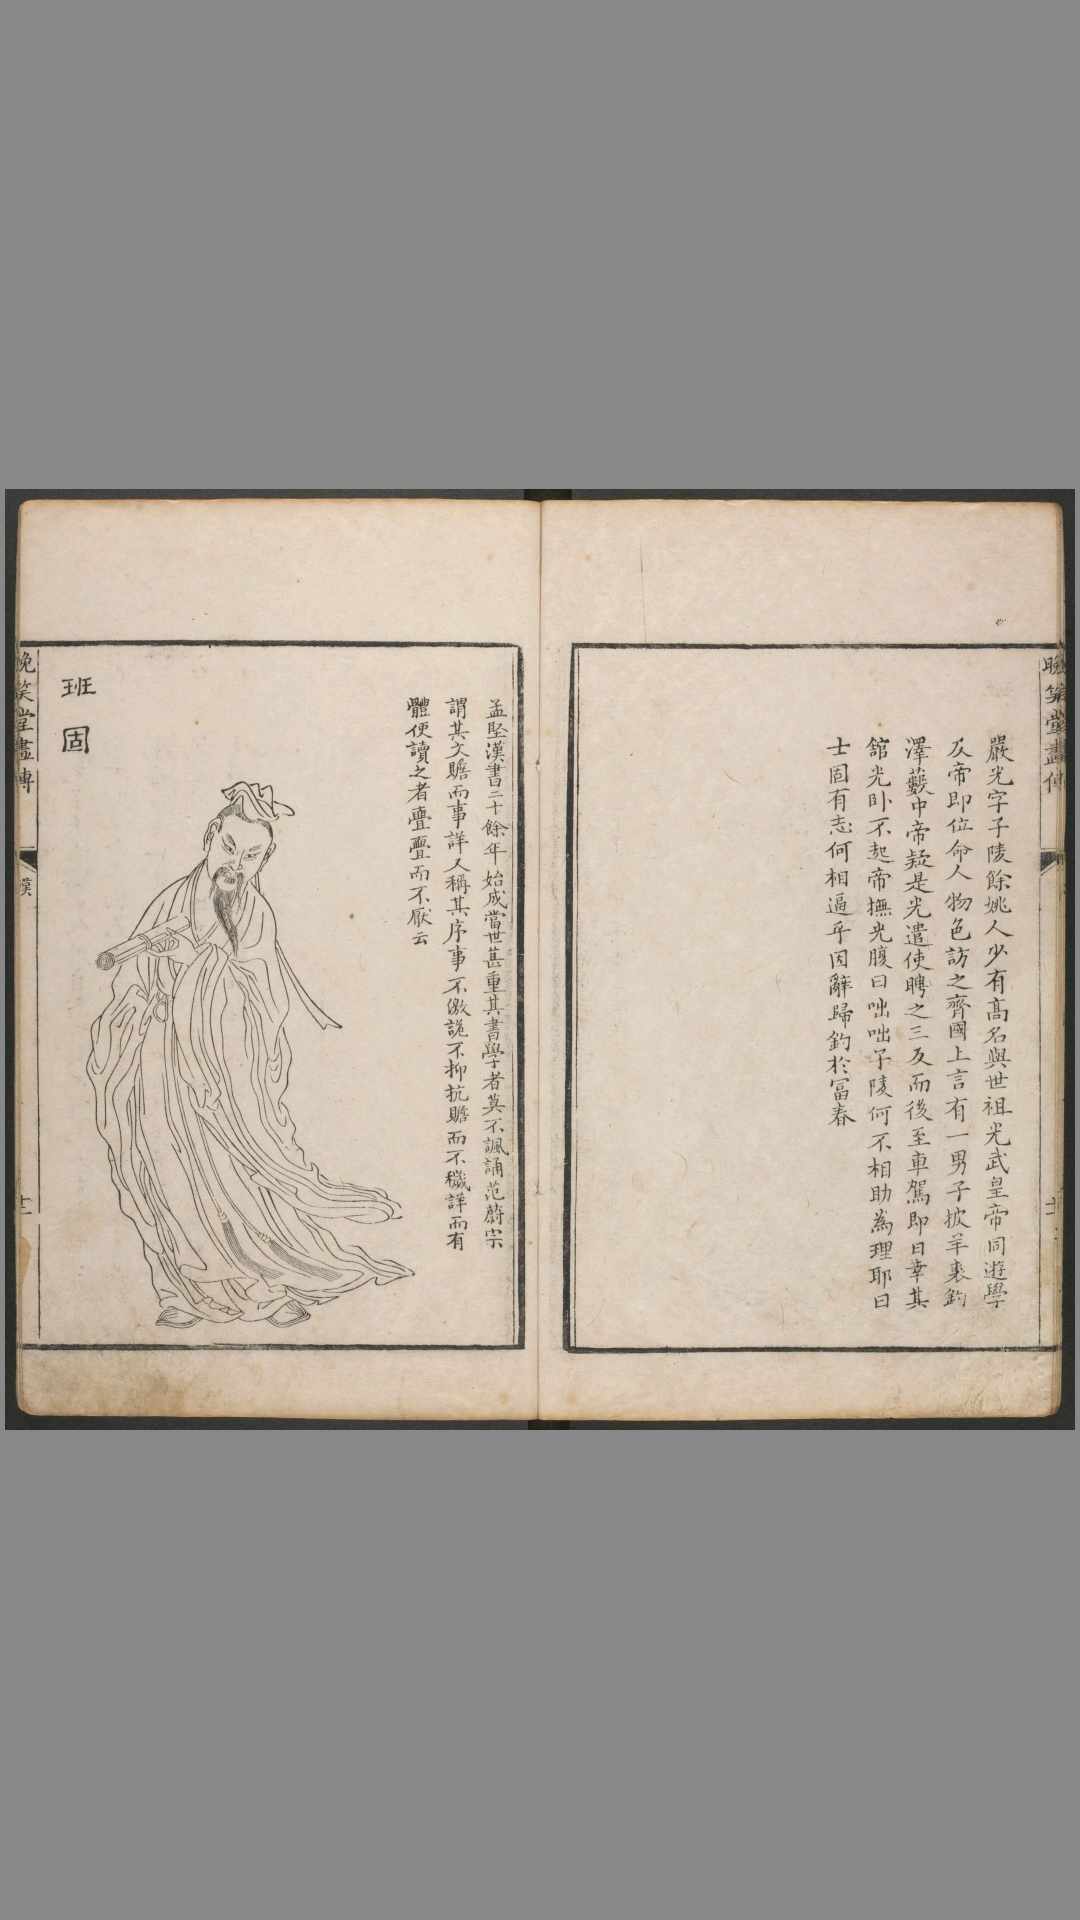 晚笑堂畫傳
嚴光字子陵餘姚人少有高名與世祖光武皇帝同遊學
及帝即位命人物色訪之齊國上言有一男子披羊裘釣
澤藪中帝疑是光遣使聘之三反而後至車駕即日幸其
館光卧不起帝撫光腹曰咄咄子陵何不相助為理耶曰
士固有志何相逼乎因辭歸釣於富春
孟堅漢書二十餘年始成當世甚重其書學者莫不諷誦范蔚宗
謂其文贍而事詳人稱其序事不激詭不抑抗贍而不穢詳而有
體使讀之者亹亹而不厭云
班固
晚笑堂畫傳
漢